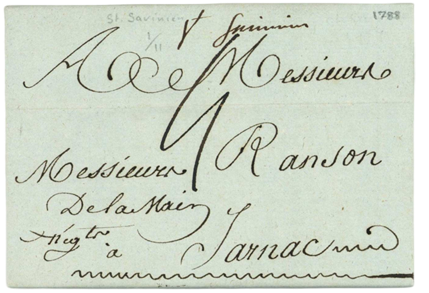 St. Savinien 1788
1/11
St Savinien
A Messieurs
Messieurs Ranson
DelaMain
Négts
à Jarnac